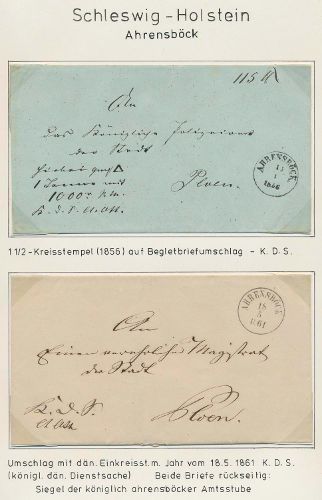 Schleswig-Holstein
Ahrensböck
115
An
das Königliche
der Stadt
1000 Rm.
Ploen.
K. d. S.
AHRENSBÖCK
1856
11/2-Kreisstempel (1856) auf Begletbriefumschlag - K. D. S.
AHRENSBÖCK
18
5
1861
An
Einen verehrlichen Magistrat
der Stadt
K. d. S.
Ploen.
Umschlag mit dän. Einkreisst.m. Jahr vom 18.5. 1861 K. D. S.
(königl. dän. Dienstsache) Beide Briefe rückseitig:
Siegel der königlich ahrensböcker Amtsstube